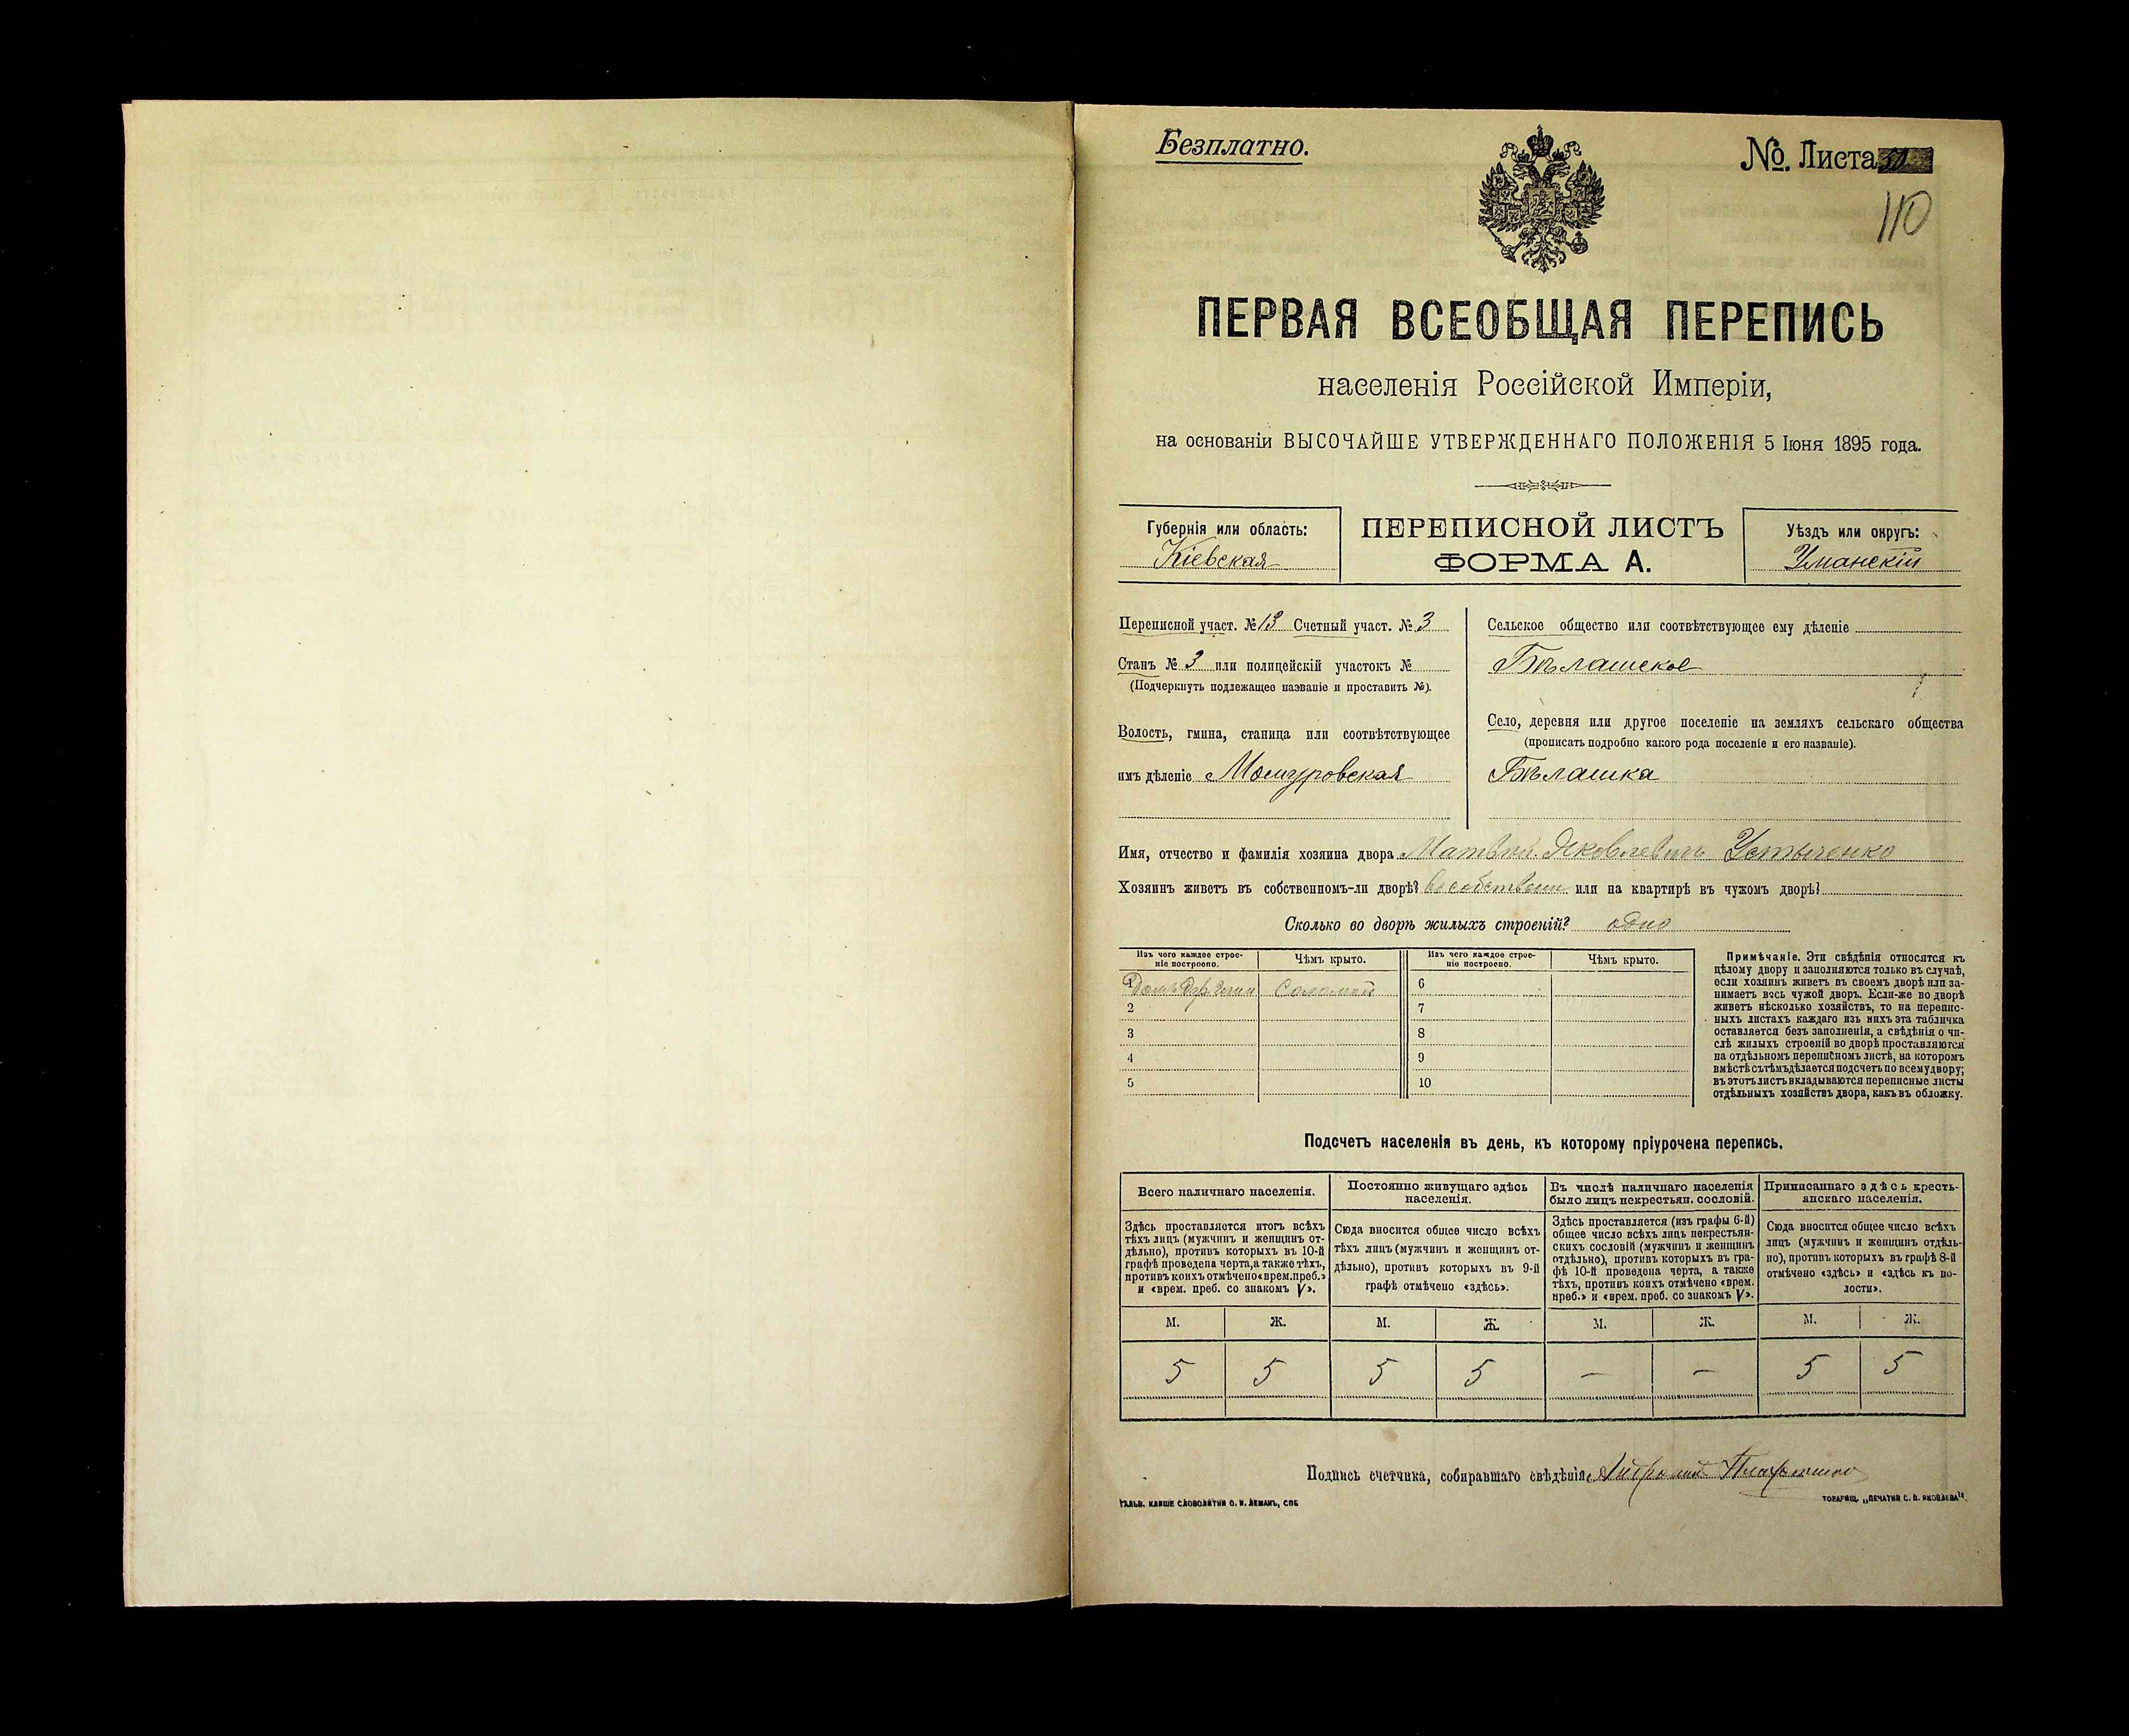 Безплатно.
№. Листа 50
110
ПЕРВАЯ ВСЕОБЩАЯ ПЕРЕПИСЬ
населенія Россійской Имперіи,
на основаніи ВЫСОЧАЙШЕ УТВЕРЖДЕННАГО ПОЛОЖЕНІЯ 5 Іюня 1895 года.
Губернія или область:
Кіевская
ПЕРЕПИСНОЙ ЛИСТЪ
ФОРМА А.
Уѣздъ или округъ:
Уманскій
Переписной участ. № 13 Счетный участ. № 3
Станъ № 3 или полицейскій участокъ №
(Подчеркнуть подлежащее названіе и проставить №).
Волость, гмина, станица или соотвѣтствующее
имъ дѣленіе Мошуровская
Сельское общество или соотвѣтствующее ему дѣленіе
Бѣлашское
Село, деревня или другое поселеніе на земляхъ сельскаго общества
(прописать подробно какого рода поселеніе и его названіе).
Бѣлашка
Имя, отчество и фамилія хозяина двора Матвѣй Яковлевичъ Устыченко
Хозяинъ живетъ въ собственномъ-ли дворѣ? въ собствен или на квартирѣ въ чужомъ дворѣ?
Сколько во дворѣ жилыхъ строеній? одно
Изъ чего каждое строе-
ніе построено.
Чѣмъ крыто.
Изъ чего каждое строе-
ніе построено.
Чѣмъ крыто.
1 Соломой
2
3
4
5
6
7
8
9
10
Примѣчаніе. Эти свѣдѣнія относятся къ
цѣлому двору и заполняются только въ случаѣ,
если хозяинъ живетъ въ своемъ дворѣ или за-
нимаетъ весь чужой дворъ. Если-же во дворѣ
живетъ нѣсколько хозяйствъ, то на перепис-
ныхъ листахъ каждаго изъ нихъ эта табличка
оставляется безъ заполненія, а свѣдѣнія о чи-
слѣ жилыхъ строеній во дворѣ проставляются
на отдѣльномъ переписномъ листѣ, на которомъ
вмѣстѣ съ тѣмъ дѣлается подсчетъ по всему двору;
въ этотъ листъ вкладываются переписные листы
отдѣльныхъ хозяйствъ двора, какъ въ обложку.
Подсчетъ населенія въ день, къ которому пріурочена перепись.
Всего наличнаго населенія.
Здѣсь проставляется итогъ всѣхъ
тѣхъ лицъ (мужчинъ и женщинъ от-
дѣльно), противъ которыхъ въ 10-й
графѣ проведена черта, а также тѣхъ,
противъ коихъ отмѣчено «врем. преб.»
и «врем. преб. со знакомъ V».
Постоянно живущаго здѣсь
населенія.
Сюда вносится общее число всѣхъ
тѣхъ лицъ (мужчинъ и женщинъ от-
дѣльно), противъ которыхъ въ 9-й
графѣ отмѣчено «здѣсь».
Въ числѣ наличнаго населенія
было лицъ некрестьян. сословій.
Здѣсь проставляется (изъ графы 6-й)
общее число всѣхъ лицъ некрестьян-
скихъ сословій (мужчинъ и женщинъ
отдѣльно), противъ которыхъ въ гра-
фѣ 10-й проведена черта, а также
тѣхъ, противъ коихъ отмѣчено «врем.
преб.» и «врем. преб. со знакомъ V».
Приписаннаго здѣсь кресть-
янскаго населенія.
Сюда вносится общее число всѣхъ
лицъ (мужчинъ и женщинъ отдѣль-
но), противъ которыхъ въ графѣ 8-й
отмѣчено «здѣсь» и «здѣсь къ во-
лости».
М. Ж. М. Ж. М. Ж. М. Ж.
5 5 5 5 – – 5 5
Подпись счетчика, собиравшаго свѣдѣнія
ГАЛЬВ. КЛИШЕ СЛОВОЛИТНИ О. И. ЛЕМАНЪ, СПБ
ТОВАРИЩ. „ПЕЧАТНЯ С. П. ЯКОВЛЕВА".